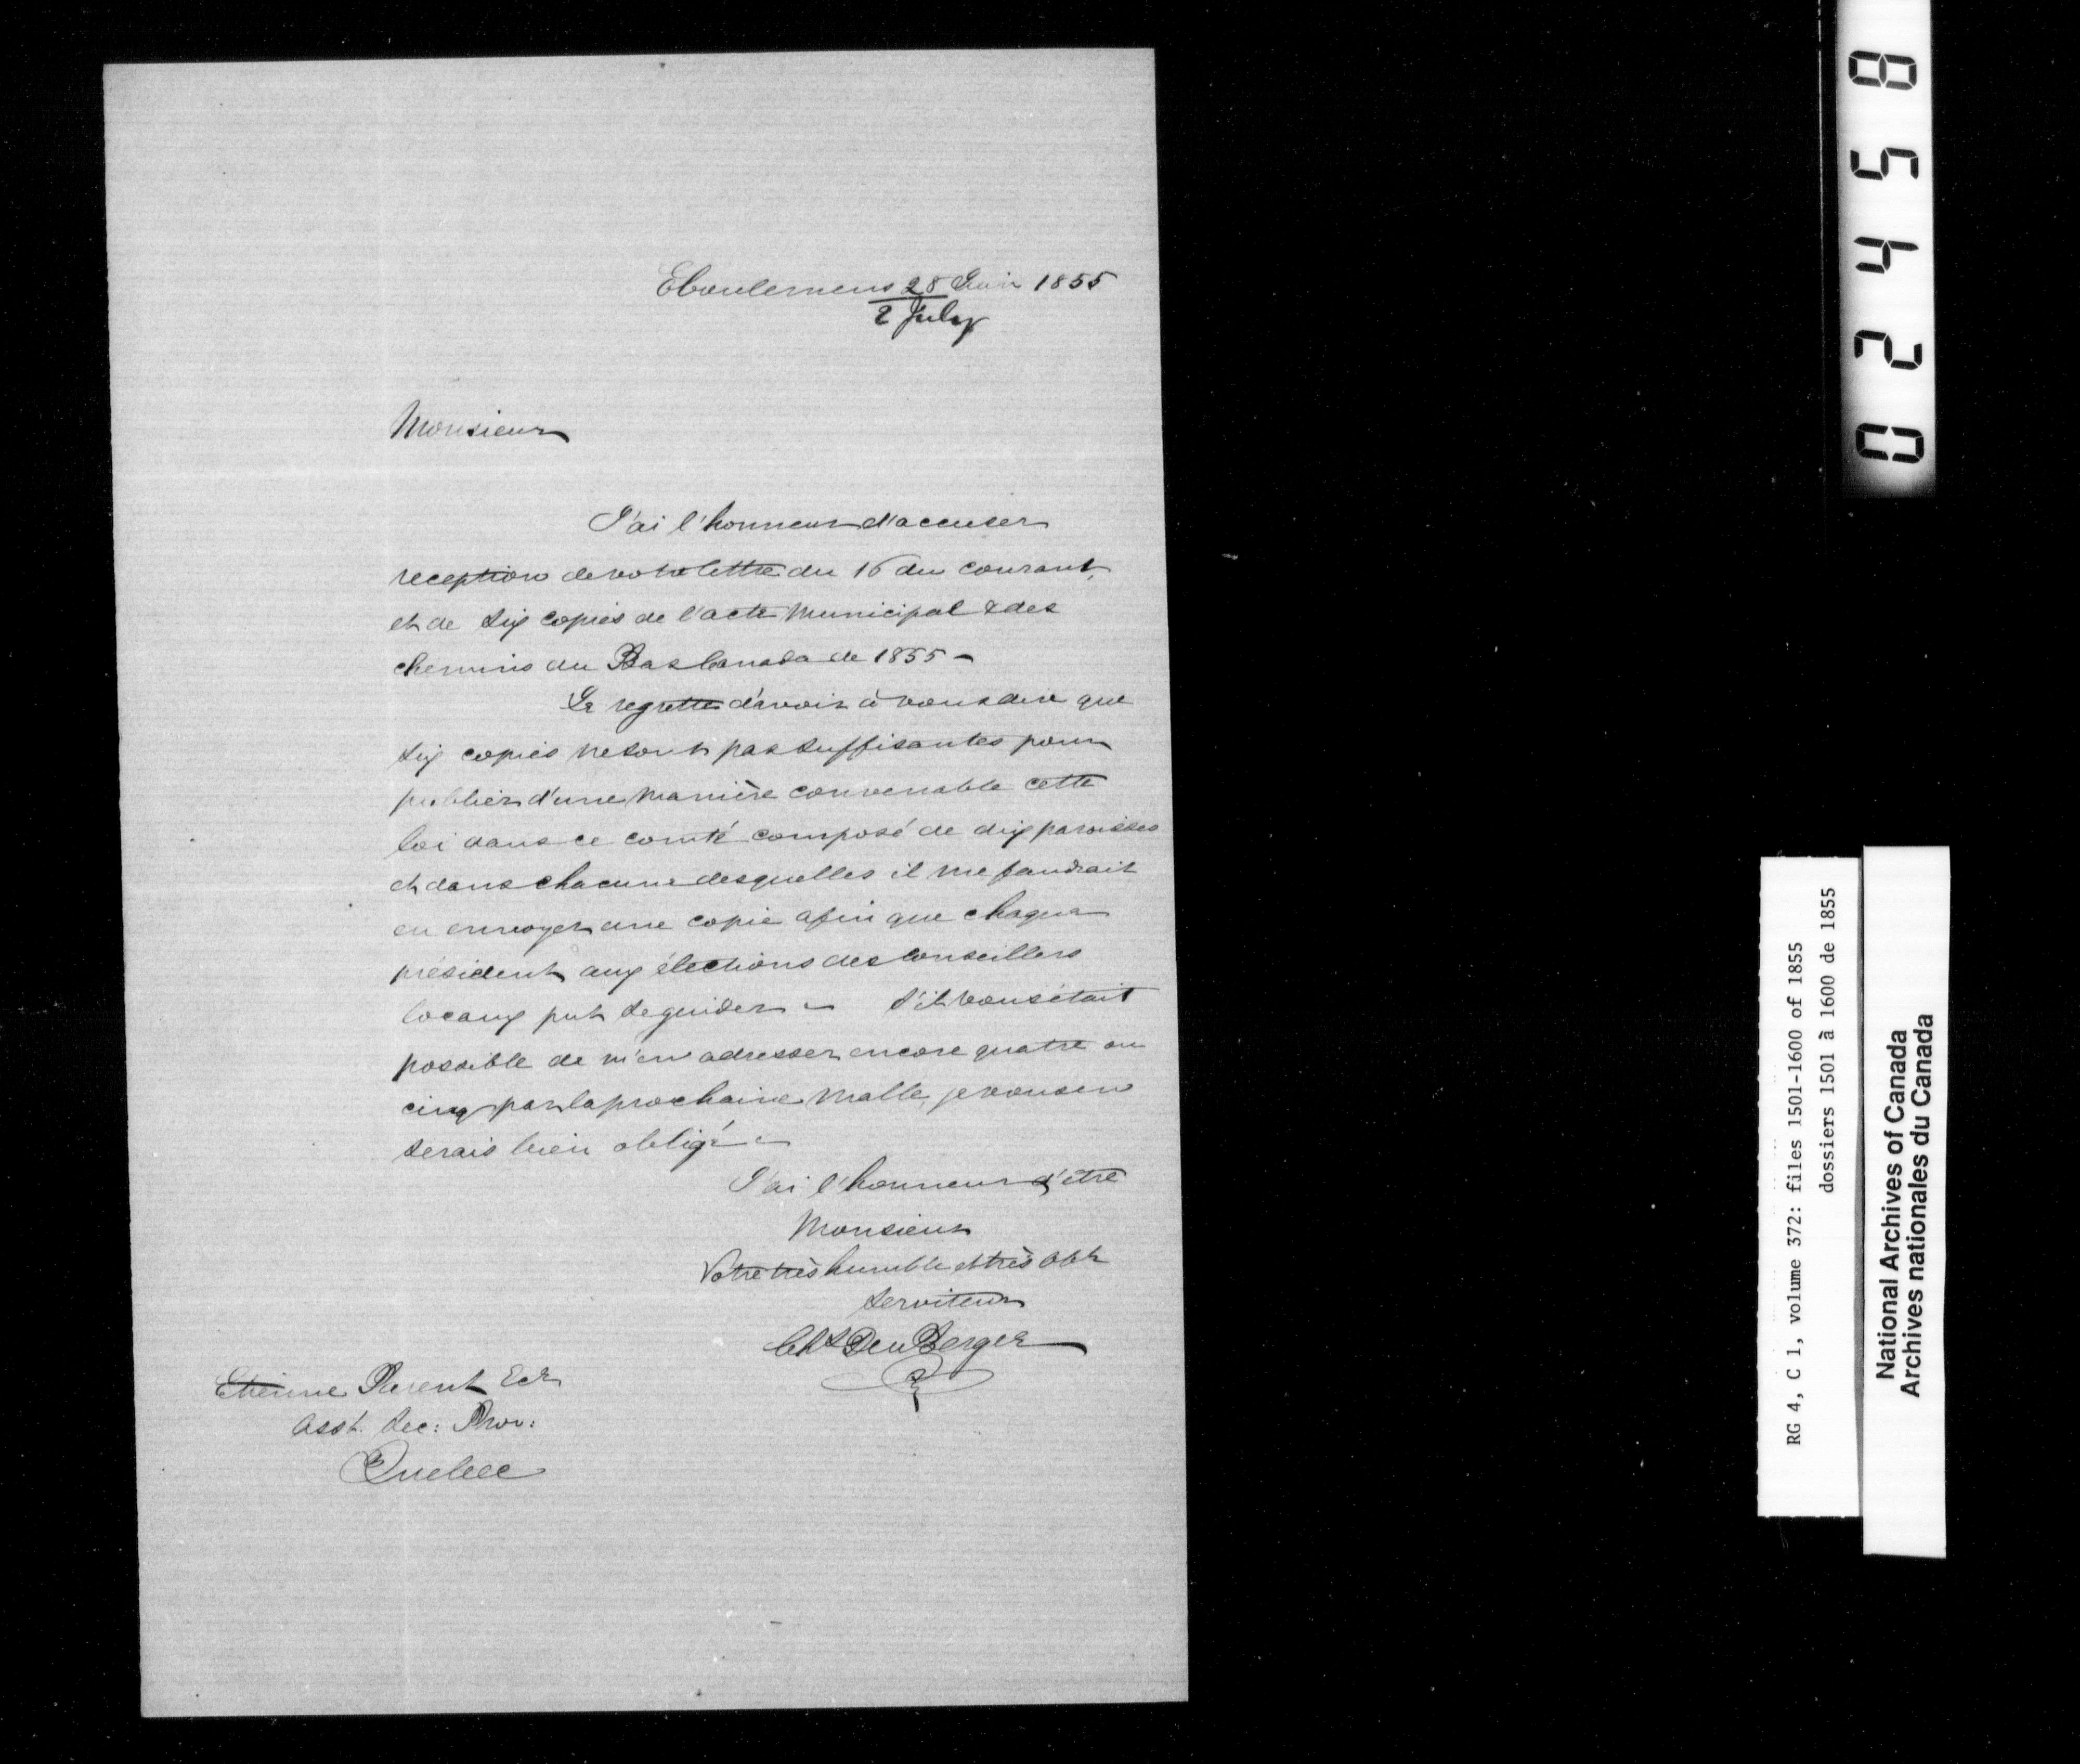 Eboulemens 28 Juin 1855
2 July
Monsieur
J'ai l'honneur d'accuser
reception de votre lettre du 16 du courant,
et de six copies de l'acte Municipal & des
chemins du Bas Canada de 1855 -
Je regrette d'avoir à vous dire que
six copies ne sont pas suffisantes pour
publier d'une manière convenable cette
loi dans ce comté composé de dix paroisses
et dans chacune desquelles il me faudrait
en envoyer une copie afin que chaque
président aux élections des Conseillers
locaux put se guider - S'il vous était
possible de m'en adresser encore quatre ou
cinq par la prochaine Malle, je vous en
serais bien obligé -
J'ai l'honneur d'être
Monsieur
Votre très humble et très Obt
Serviteur
Chs Du Berger
Etienne Parent Ecr
Asst. Sec: Prov:
Quebec
02458
RG 4, C 1, volume 372: files 1501-1600 of 1855
dossiers 1501 à 1600 de 1855
National Archives of Canada
Archives nationales du Canada